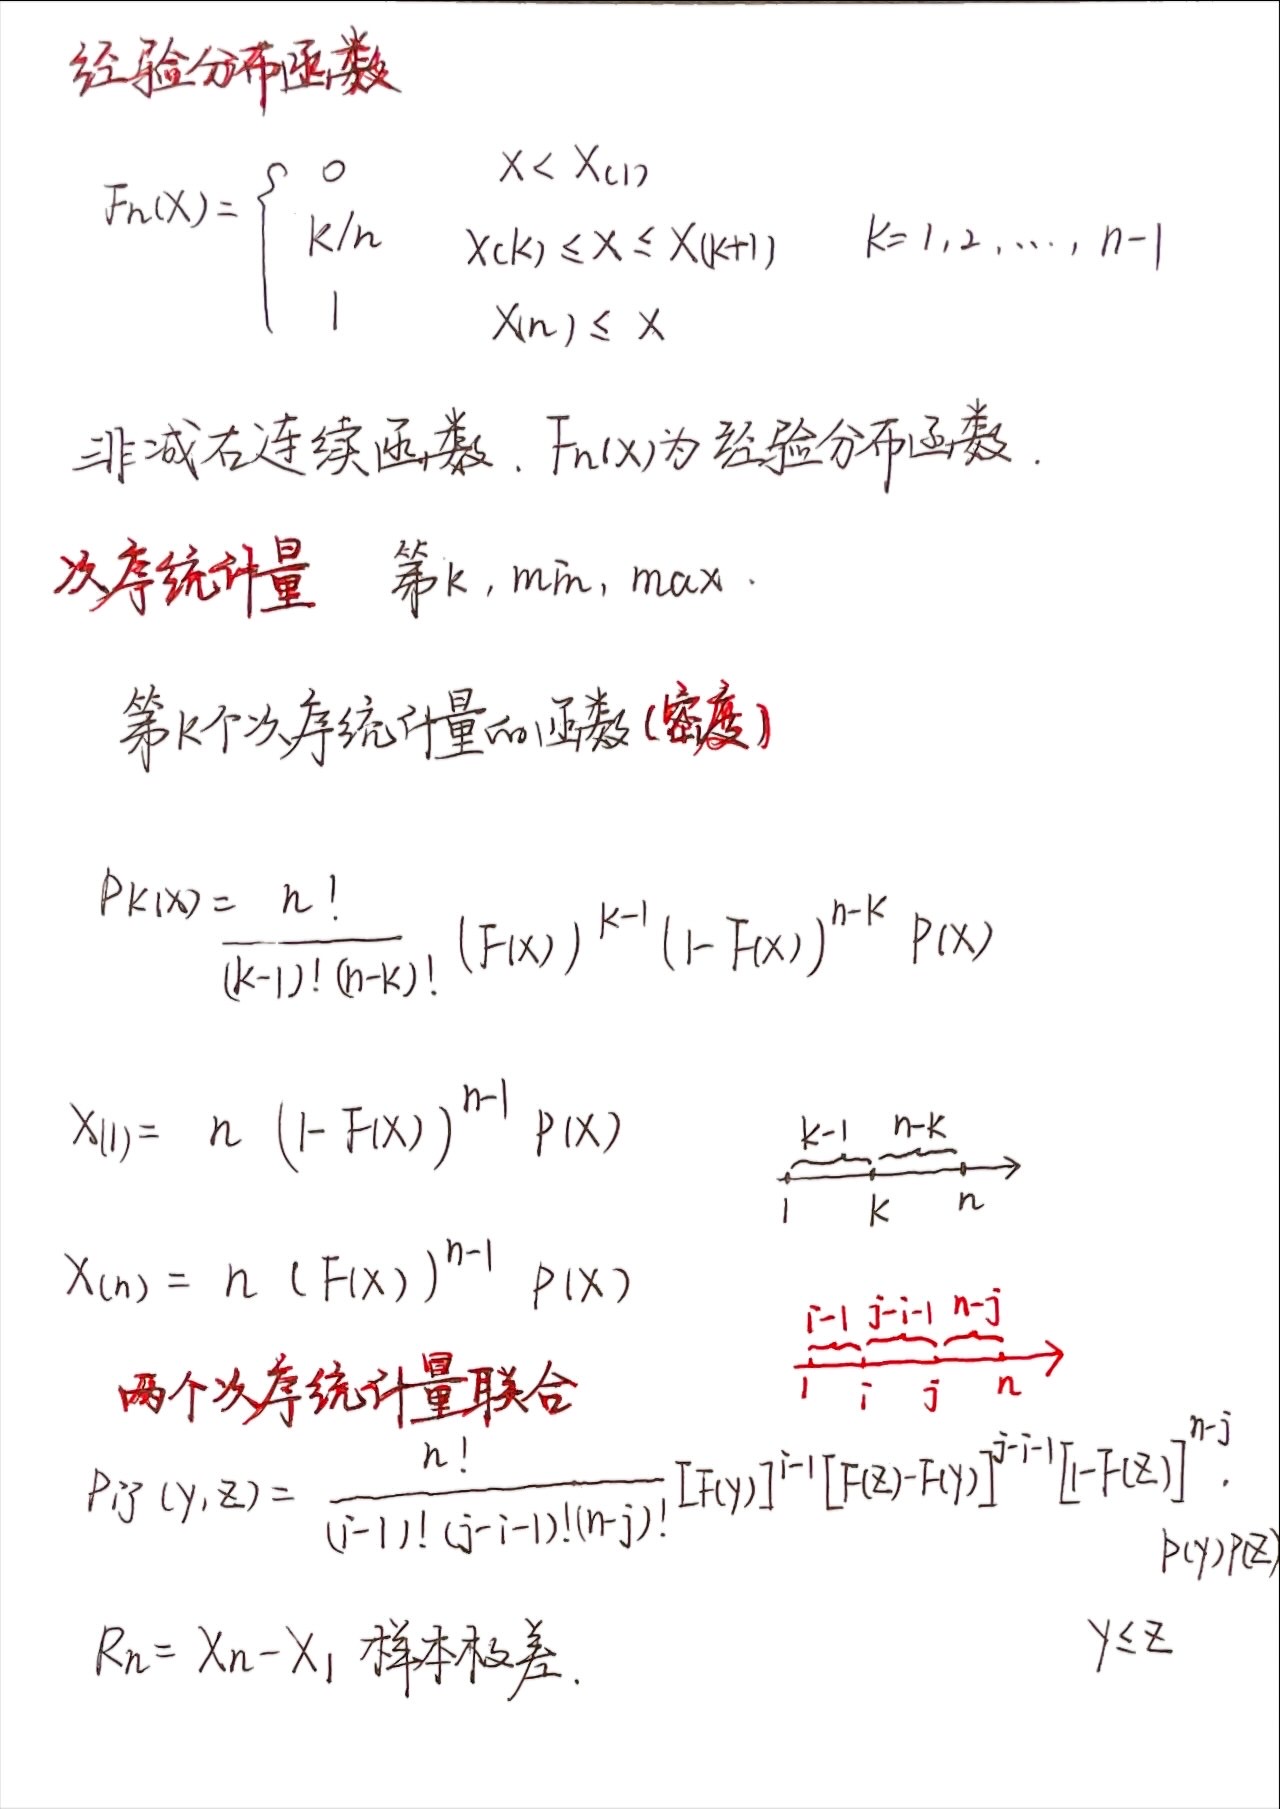 经验分布函数
Fn(x) = { 0 x < x(1)
k/n x(k) ≤ x ≤ x(k+1) k = 1, 2, ..., n-1
1 x(n) ≤ x
非减右连续函数. Fn(x)为经验分布函数.
次序统计量 第k, min, max.
第k个次序统计量的函数(密度)
Pk(x) = n! / (k-1)!(n-k)! (F(x))^(k-1) (1-F(x))^(n-k) P(x)
X(1) = n (1-F(x))^(n-1) P(x)
k-1 n-k
1 k n
X(n) = n (F(x))^(n-1) P(x)
i-1 j-i-1 n-j
1 i j n
两个次序统计量联合
Pij(y,z) = n! / (i-1)!(j-i-1)!(n-j)! [F(y)]^(i-1) [F(z)-F(y)]^(j-i-1) [1-F(z)]^(n-j) ·
P(y)P(z)
Rn = Xn - X1 样本极差.
y ≤ z